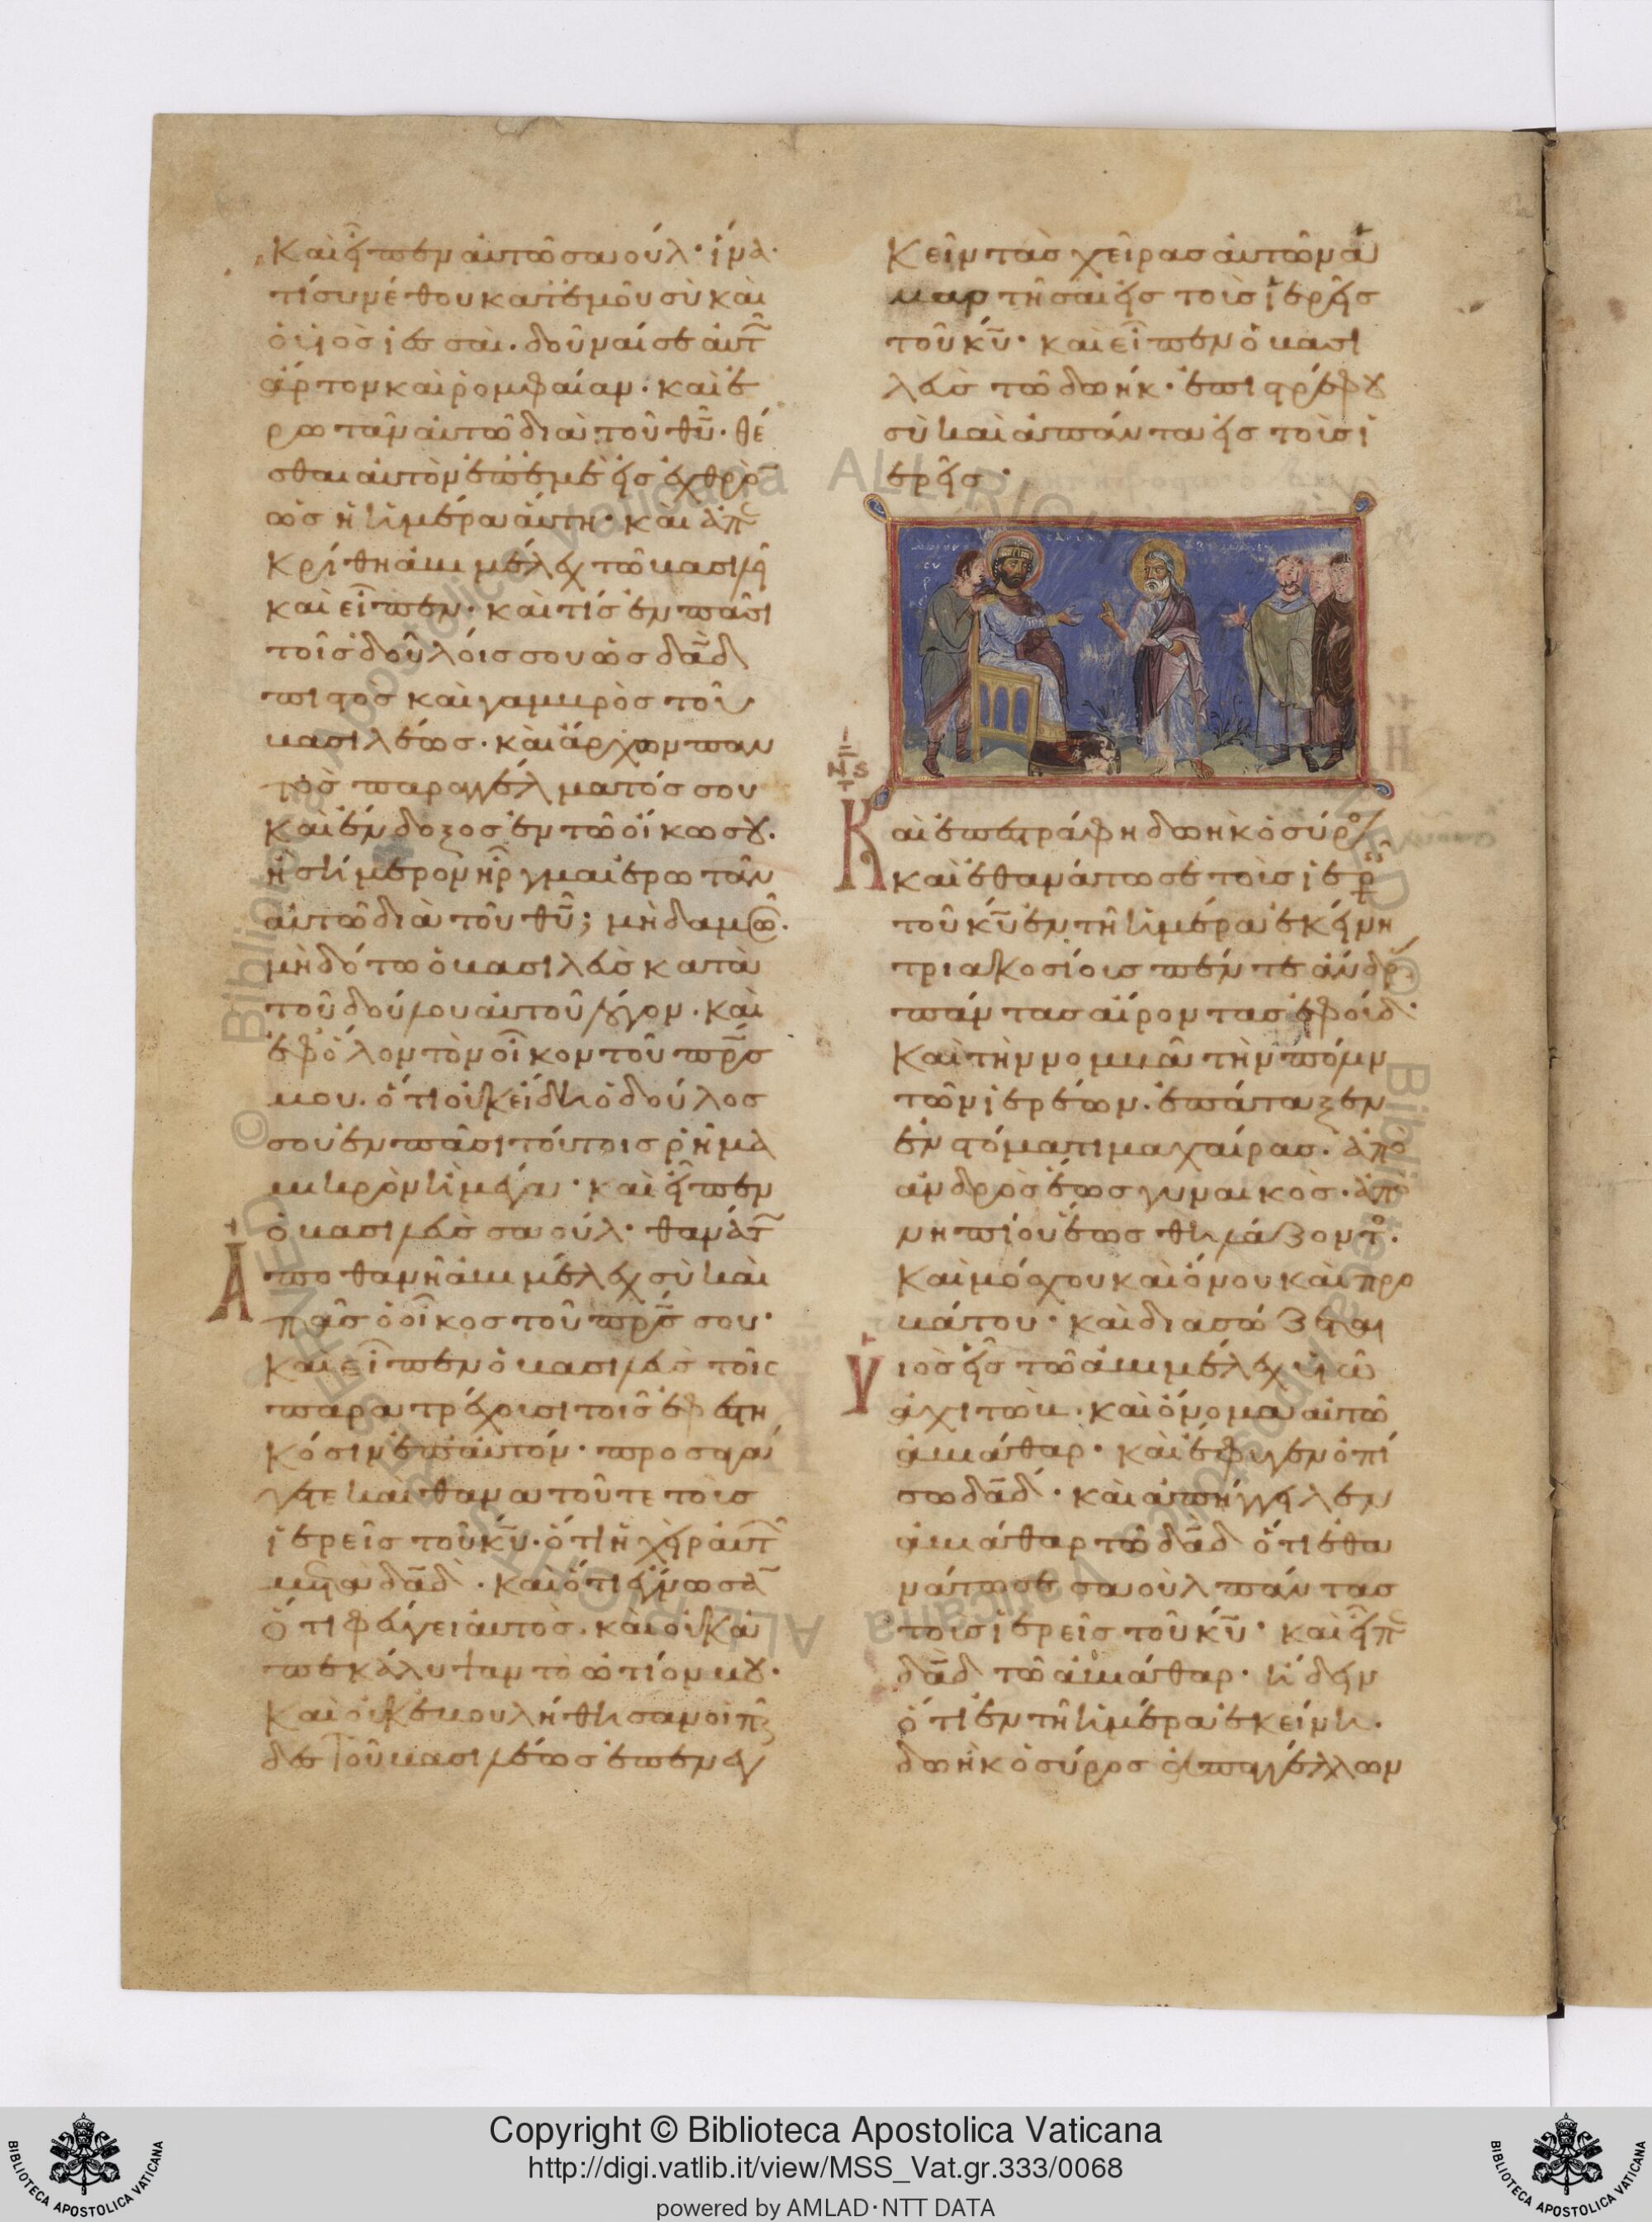 Καὶ εἶπεν αὐτῶ σαούλ· ἵνα
τί συνέθου κατ' ἐμοῦ σὺ καὶ
ὁ υἱὸς ἰεσσαί. δοῦναί σε αὐτ
ἄρτον καὶ ρομφαίαν· καὶ ἐ
ρωτᾶν αὐτῶ διὰ τοῦ θυ· θέ
σθαι αὐτὸν ἐπ' ἐμὲ εἰς ἐχθρὸ
ὡς ἡ ἡμέρα αὕτη· καὶ ἀπ
κρίθη ἀβιμέλεχ τῶ βασιλεῖ
καὶ εἶπεν· καὶ τίς ἐν πᾶσι
τοῖς δούλοις σου ὡς δαδ
πιστὸς καὶ γαμβρὸς τοῦ
βασιλέως· καὶ ἄρχων παν
τὸς παραγγέλματός σου
καὶ ἔνδοξος ἐν τῶ οἴκω σου.
ἢ σήμερον ἦργμαι ἐρωτᾶν
αὐτῶ διὰ τοῦ θυ; μηδαμῶ.
μὴ δότω ὁ βασιλεὺς κατὰ
τοῦ δούλου αὐτοῦ λόγον· καὶ
ἐφ' ὅλον τὸν οἶκον τοῦ πρς
μου. ὅτι οὐκ ἤδει ὁ δοῦλος
σου ἐν πᾶσι τούτοις ρῆμα
μικρὸν ἢ μέγα· καὶ εἶπεν
ὁ βασιλεὺς σαούλ· θανάτ
Ἀποθανῆ ἀβιμέλεχ σὺ καὶ
πᾶς ὁ οἶκος τοῦ πρς σου·
καὶ εἶπεν ὁ βασιλεὺς τοῖς
παρατρέχουσι τοῖς ἐφεστη
κόσιν ἐπ' αὐτόν· προσαγά
γετε καὶ θανατοῦτε τοὺς
ἱερεῖς τοῦ κυ· ὅτι ἡ χεὶρ αὐτ
μετὰ δαδ· καὶ ὅτι ἔγνωσα
ὅτι φεύγει αὐτὸς. καὶ οὐκ ἀ
πεκάλυψαν τὸ ὠτίον μου·
Καὶ οὐκ ἐβουλήθησαν οἱ π
δες τοῦ βασιλέως ἐπενεγ
κεῖν τὰς χεῖρας αὐτῶν ἁ
μαρτῆσαι εἰς τοὺς ἱερεῖς
τοῦ κυ· καὶ εἶπεν ὁ βασι
λεὺς τῶ δωήκ· ἐπιστρέφου
σὺ καὶ ἀπάντα εἰς τοὺς ἱ
ερεῖς·
Καὶ ἐπεστράφη δωὴκ ὁ σύρο
καὶ ἐθανάτωσε τοὺς ἱερ
τοῦ κυ ἐν τῆ ἡμέρα ἐκείνη
τριακοσίους πέντε ἄνδρ
πάντας αἴροντας ἐφούδ·
καὶ τὴν νομβᾶ τὴν πόλιν
τῶν ἱερέων. ἐπάταξεν
ἐν στόματι μαχαίρας. ἀπὸ
ἀνδρὸς ἕως γυναικὸς· ἀπὸ
νηπίου ἕως θηλάζοντο.
καὶ μόσχου καὶ ὄνου καὶ προ
βάτου· καὶ διασώζεται
Υἱὸς εἷς τῶ ἀβιμέλεχ υἱῶ
ἀχιτώβ. καὶ ὄνομα αὐτῶ
ἀβιάθαρ· καὶ ἔφυγεν ὀπί
σω δαδ· καὶ ἀπήγγειλεν
ἀβιάθαρ τῶ δαδ ὅτι ἐθα
νάτωσε σαοὺλ πάντας
τοὺς ἱερεῖς τοῦ κυ· καὶ εἶπ
δαδ τῶ ἀβιάθαρ· ἤδειν
ὅτι ἐν τῆ ἡμέρα ἐκείνη.
δωὴκ ὁ σύρος ἀπαγγέλλων
Copyright © Biblioteca Apostolica Vaticana
http://digi.vatlib.it/view/MSS_Vat.gr.333/0068
powered by AMLAD·NTT DATA
BIBLIOTECA APOSTOLICA VATICANA
BIBLIOTECA APOSTOLICA VATICANA